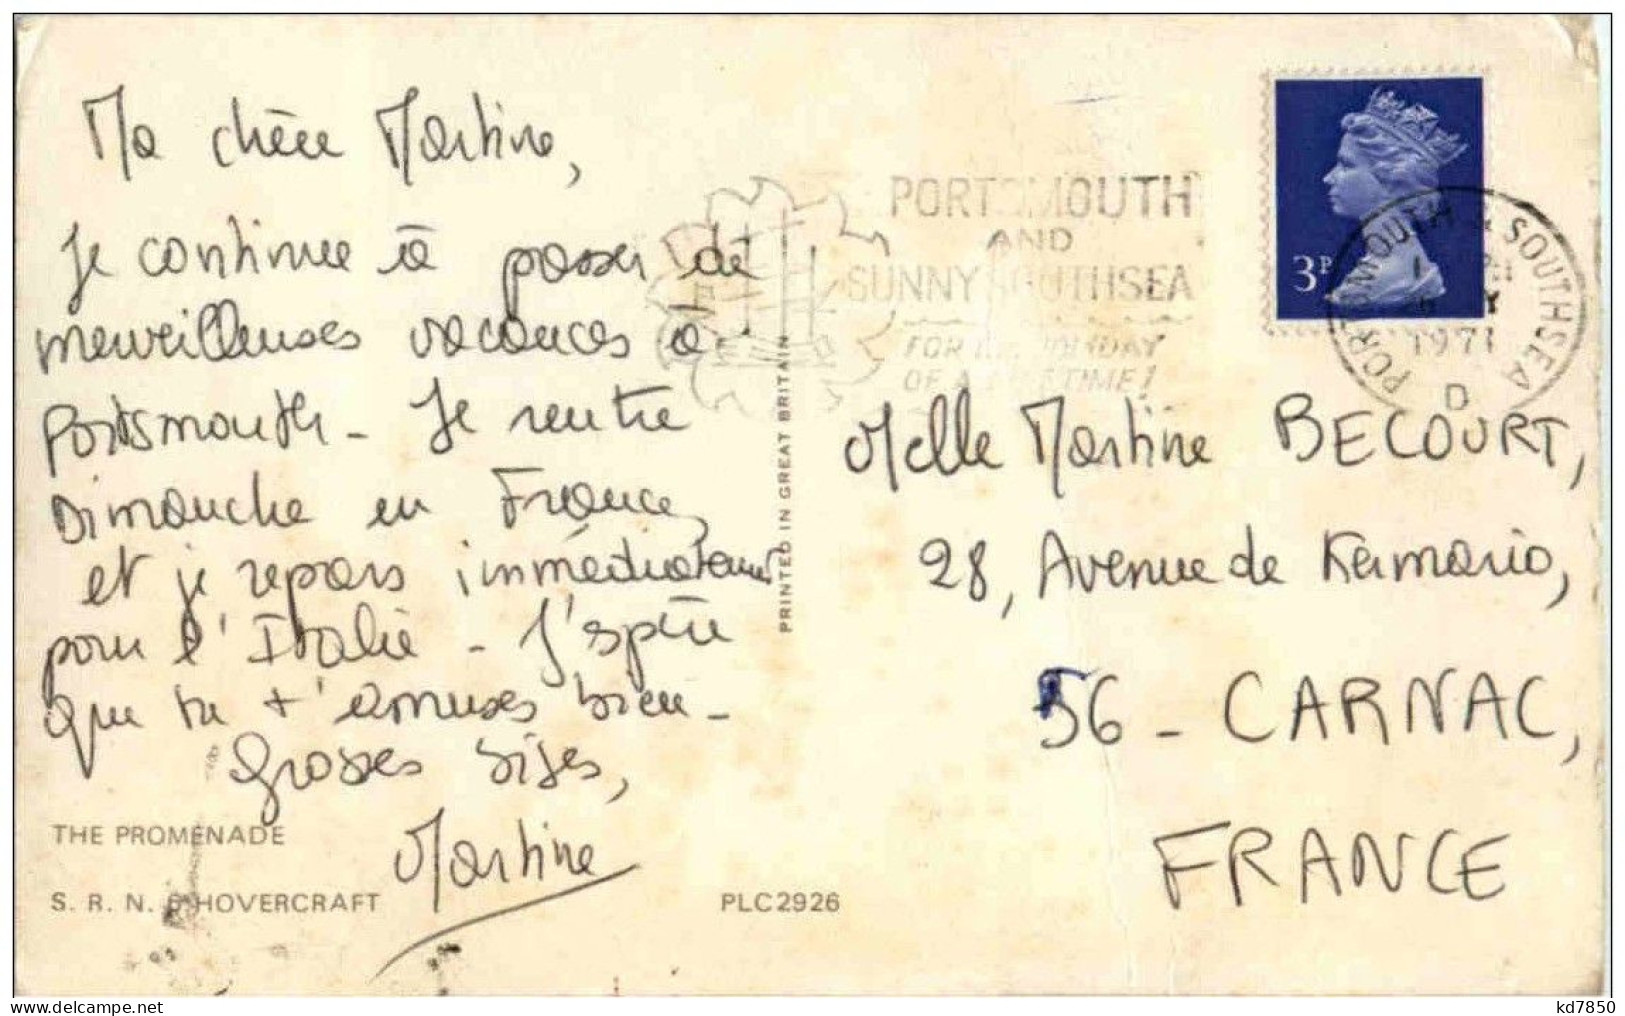 Ma chère Martine,
Je continue à passer de
merveilleuses vacances à
Portsmouth - Je rentre
Dimanche en France,
et je repars immédiatement
pour l'Italie - J'espère
que tu t'amuses bien -
Grosses bises,
Martine
THE PROMENADE
S. R. N. 6 HOVERCRAFT
PLC2926
PRINTED IN GREAT BRITAIN
PORTSMOUTH
AND
SUNNY SOUTHSEA
FOR THE HOLIDAY
OF A LIFETIME!
3P
PORTSMOUTH & SOUTHSEA
1971
D
Melle Martine BECOURT,
28, Avenue de Kermario,
56 - CARNAC,
FRANCE
kd7850